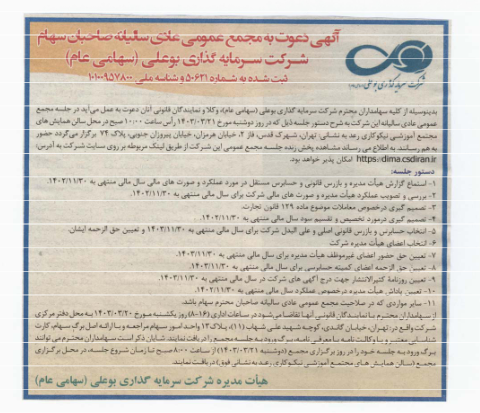 آگهی دعوت به مجمع عمومی عادی سالیانه صاحبان سهام
شرکت سرمایه گذاری بوعلی (سهامی عام)
ثبت شده به شماره ۵۰۶۲۱ و شناسه ملی ۱۰۱۰۰۹۵۷۸۰۰
شرکت سرمایه گذاری بوعلی
بدینوسیله از کلیه سهامداران محترم شرکت سرمایه گذاری بوعلی (سهامی عام)، وکلا و نمایندگان قانونی آنان دعوت به عمل می‌آید در جلسه مجمع
عمومی عادی سالیانه این شرکت به شرح دستور جلسه ذیل که در روز دوشنبه مورخ ۱۴۰۳/۰۳/۲۱ رأس ساعت ۱۰:۰۰ صبح در محل سالن همایش های
مجتمع آموزشی نیکوکاری رعد به نشانی: تهران، شهرک قدس، فاز ۲، خیابان هرمزان، خیابان پیروزان جنوبی، پلاک ۷۴ برگزار می‌گردد حضور
به هم رسانند. به اطلاع می رساند مشاهده پخش زنده جلسه مجمع عمومی این شرکت از طریق لینک مربوطه بر روی سایت شرکت به آدرس:
https://dima.csdiran.ir امکان پذیر خواهد بود.
دستور جلسه:
۱- استماع گزارش هیأت مدیره و بازرس قانونی و حسابرس مستقل در مورد عملکرد و صورت های مالی سال مالی منتهی به ۱۴۰۲/۱۱/۳۰.
۲- بررسی و تصویب عملکرد هیأت مدیره و صورت های مالی شرکت برای سال مالی منتهی به ۱۴۰۲/۱۱/۳۰.
۳- تصمیم گیری درخصوص معاملات موضوع ماده ۱۲۹ قانون تجارت.
۴- تصمیم گیری درمورد تخصیص و تقسیم سود سال مالی منتهی به ۱۴۰۲/۱۱/۳۰.
۵- انتخاب حسابرس و بازرس قانونی اصلی و علی البدل شرکت برای سال مالی منتهی به ۱۴۰۳/۱۱/۳۰ و تعیین حق الزحمه ایشان.
۶- انتخاب اعضای هیأت مدیره شرکت
۷- تعیین حق حضور اعضای غیرموظف هیأت مدیره برای سال مالی منتهی به ۱۴۰۳/۱۱/۳۰.
۸- تعیین حق الزحمه اعضای کمیته حسابرسی برای سال مالی منتهی به ۱۴۰۳/۱۱/۳۰.
۹- تعیین روزنامه کثیرالانتشار جهت درج آگهی های شرکت در سال مالی منتهی به ۱۴۰۳/۱۱/۳۰.
۱۰- تعیین پاداش هیأت مدیره درخصوص عملکرد سال مالی منتهی به ۱۴۰۲/۱۱/۳۰.
۱۱- سایر مواردی که در صلاحیت مجمع عمومی عادی سالیانه صاحبان محترم سهام باشد.
از سهامداران محترم یا نمایندگان قانونی آنها تقاضا می‌شود در ساعات اداری (۱۶-۸) روز یکشنبه مورخ ۱۴۰۳/۰۳/۲۰ به محل دفتر مرکزی
شرکت واقع در: تهران، خیابان گاندی، کوچه شهید علی شهاب (۱۱)، پلاک ۱۳ واحد امور سهام مراجعه و با ارائه اصل برگ سهام، کارت
شناسایی معتبر و یا وکالت نامه یا معرفی نامه، برگ ورود به جلسه مجمع را دریافت نمایند. شایان ذکر است سهامداران محترم می توانند
برگ ورود به جلسه خود را در روز برگزاری مجمع (دوشنبه ۱۴۰۳/۰۳/۲۱) از ساعت ۸:۰۰ صبح تا زمان شروع جلسه، در محل برگزاری
مجمع (سالن همایش های مجتمع آموزشی نیکوکاری رعد به نشانی فوق) دریافت نمایند.
هیأت مدیره شرکت سرمایه گذاری بوعلی (سهامی عام)